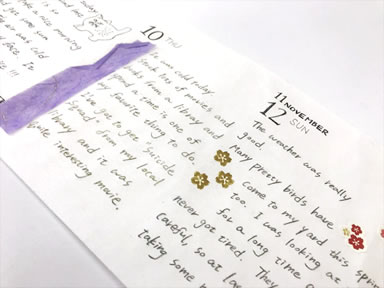 today
this morning
get some sun
was cold
face. It
10 THU
was cold today.
lots of movies and
books from a library and
spend time is one of
my favorite thing to do.
I've got to get "Suicide
Squad" from my local
library and it was
quite interesting movie.
11 NOVEMBER
12 SUN
The weather was really
good.
Many pretty birds have
come to my yard this
too. I was looking at
for a long time
never got tired. They
careful, so at
taking some